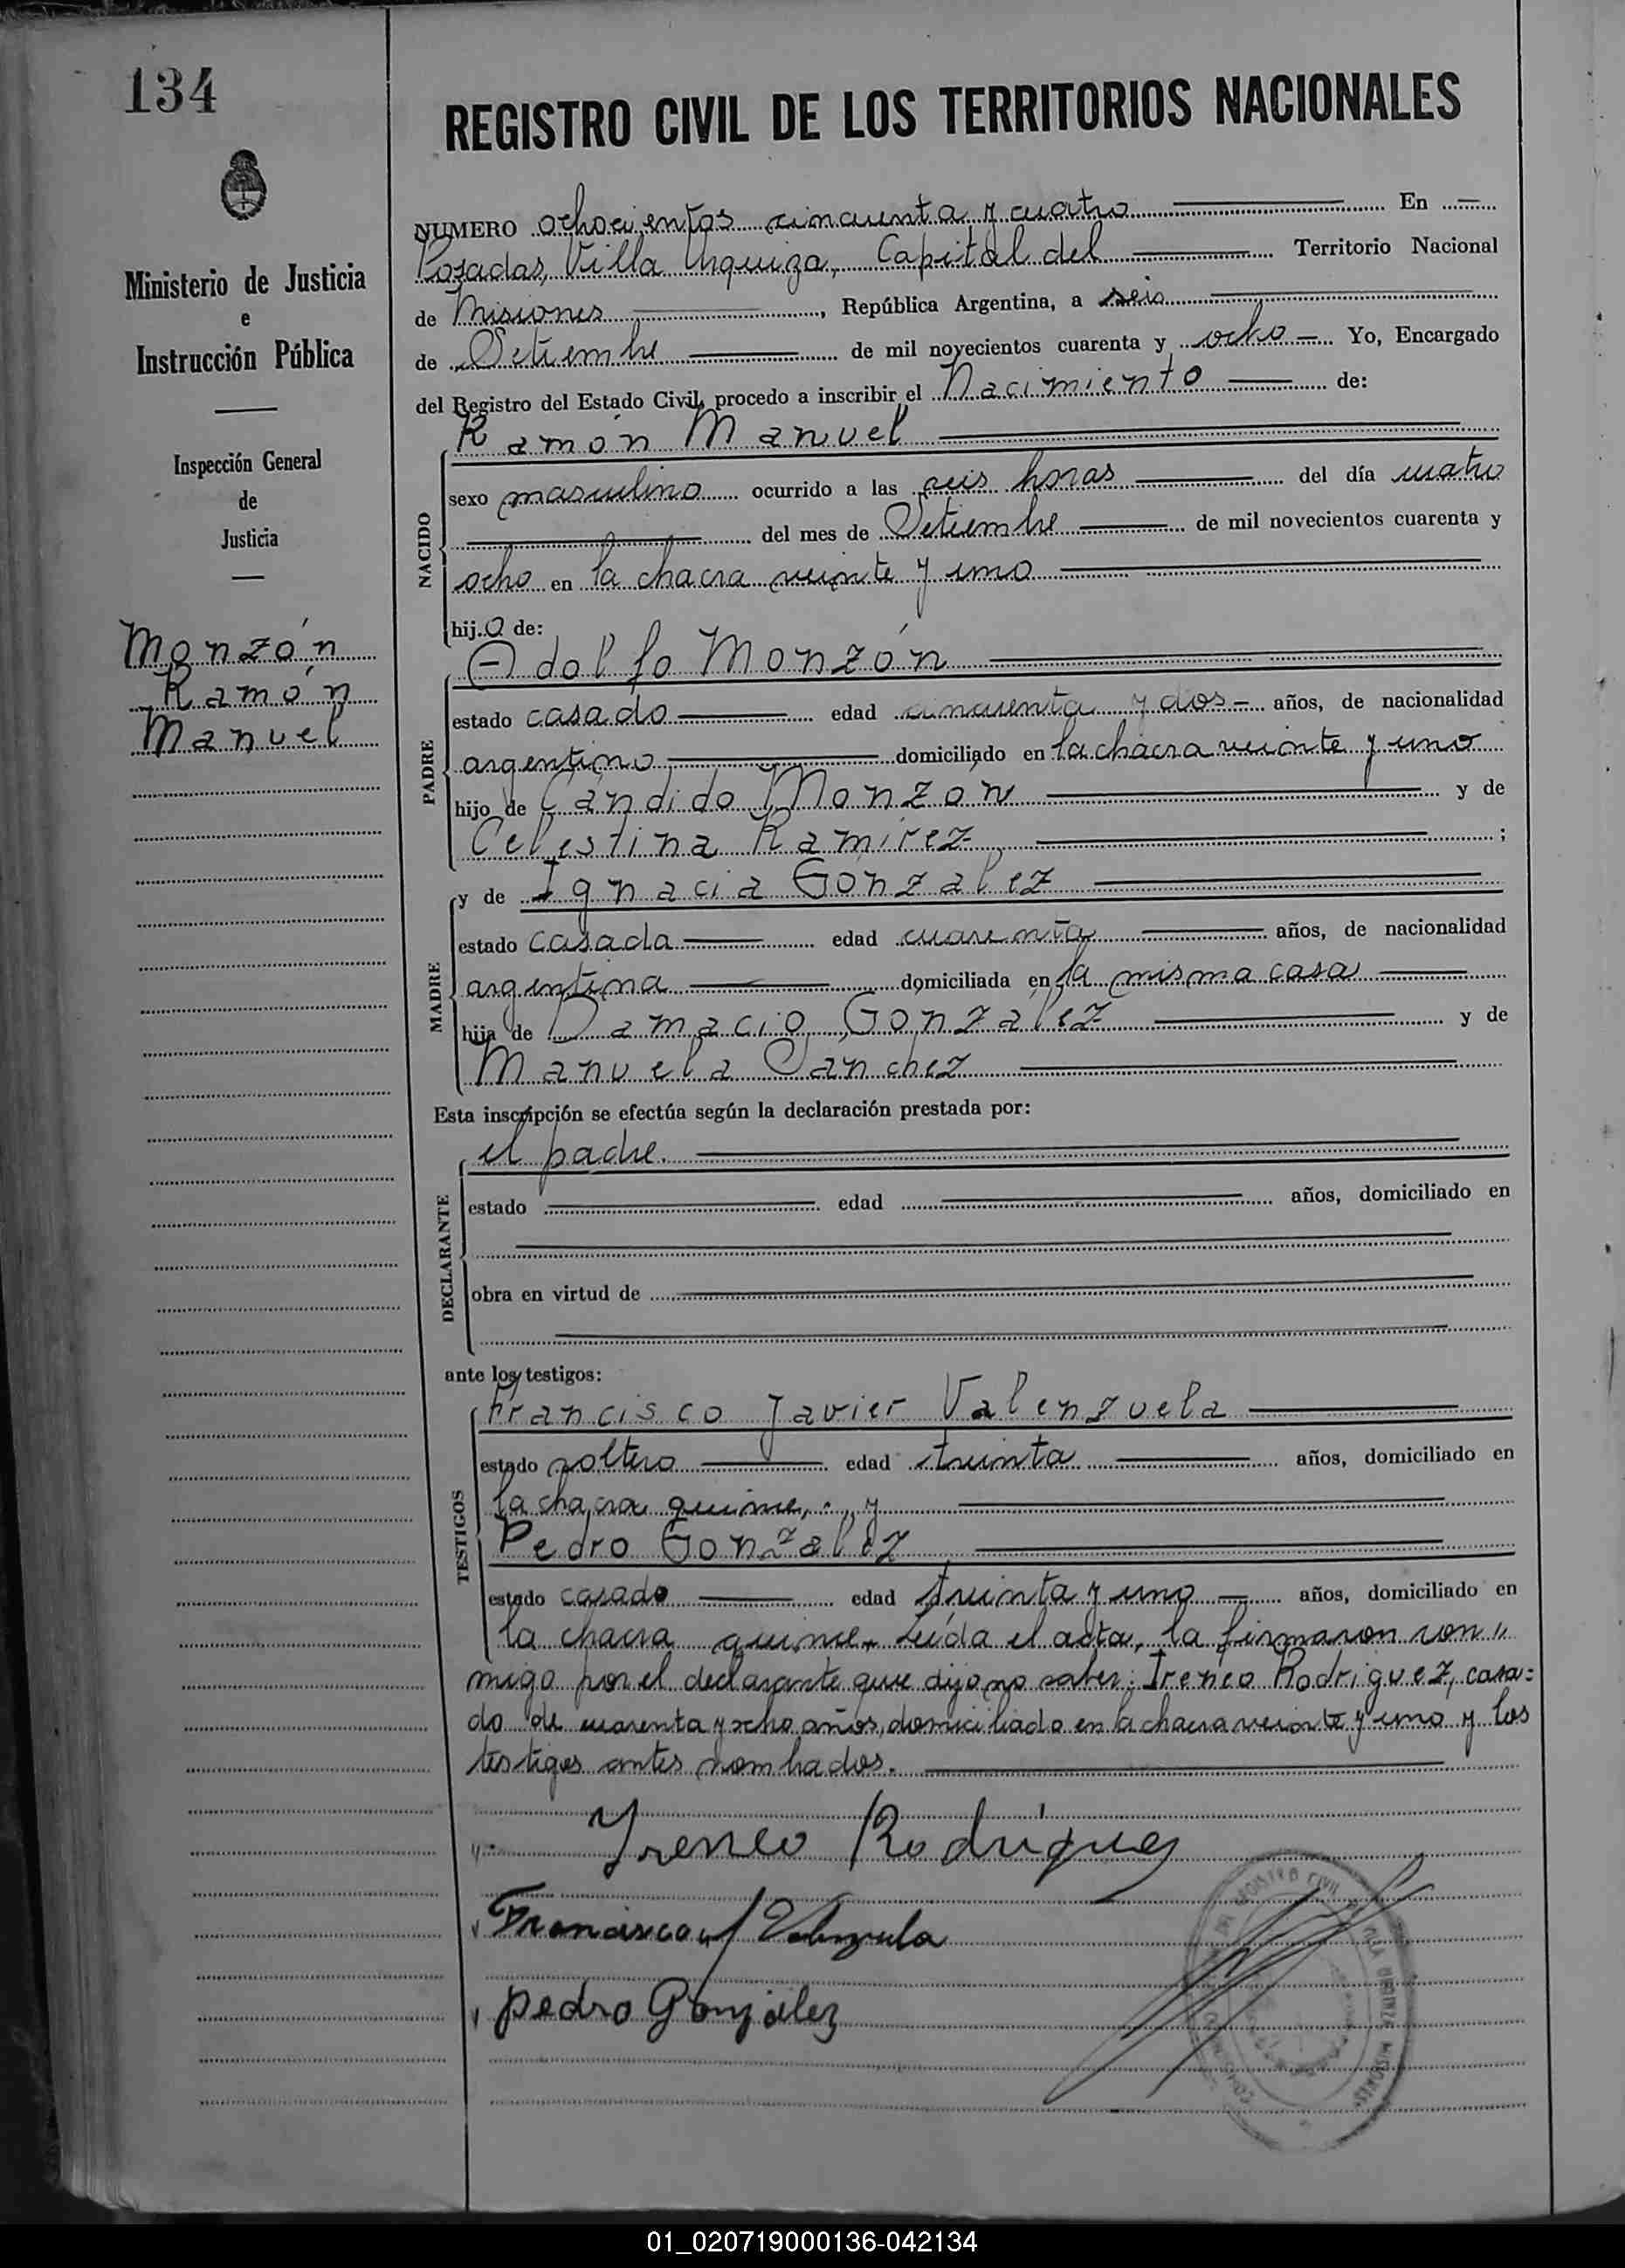 134
REGISTRO CIVIL DE LOS TERRITORIOS NACIONALES
Ministerio de Justicia
e
Instrucción Pública
Inspección General
de
Justicia
Monzón
Ramón
Manuel
NUMERO ochocientos cincuenta y cuatro En
Posadas, Villa Urquiza, Capital del Territorio Nacional
de Misiones, República Argentina, a seis
de Setiembre de mil novecientos cuarenta y ocho Yo, Encargado
del Registro del Estado Civil, procedo a inscribir el Nacimiento de:
Ramón Manuel
NACIDO
sexo masculino ocurrido a las seis horas del día cuatro
del mes de Setiembre de mil novecientos cuarenta y
ocho en la chacra veinte y uno
hijo de:
Adolfo Monzón
PADRE
estado casado edad cincuenta y dos años, de nacionalidad
argentino domiciliado en la chacra veinte y uno
hijo de Cándido Monzón y de
Celestina Ramírez ;
y de Ignacia Gonzalez
MADRE
estado casada edad cuarenta años, de nacionalidad
argentina domiciliada en la misma casa
hija de Damacio Gonzálec y de
Manuela Sanchez
Esta inscripción se efectúa según la declaración prestada por:
el padre.
DECLARANTE
estado edad años, domiciliado en
obra en virtud de
ante los testigos:
Francisco Javier Valenzuela
TESTIGOS
estado soltero edad treinta años, domiciliado en
la chacra quince, y
Pedro Gonzalez
estado casado edad treinta y uno años, domiciliado en
la chacra quince. Leída el acta, la firmaron con"
migo por el declarante que dijo no saber: Ireneo Rodriguez, casa=
do de cuarenta y ocho años, domiciliado en la chacra veinte y uno y los
testigos antes nombrados.
Yreneo Rodriguez
Francisco J Valenzuela
pedro González
REGISTRO CIVIL VILLA URQUIZA MISIONES
01_020719000136-042134